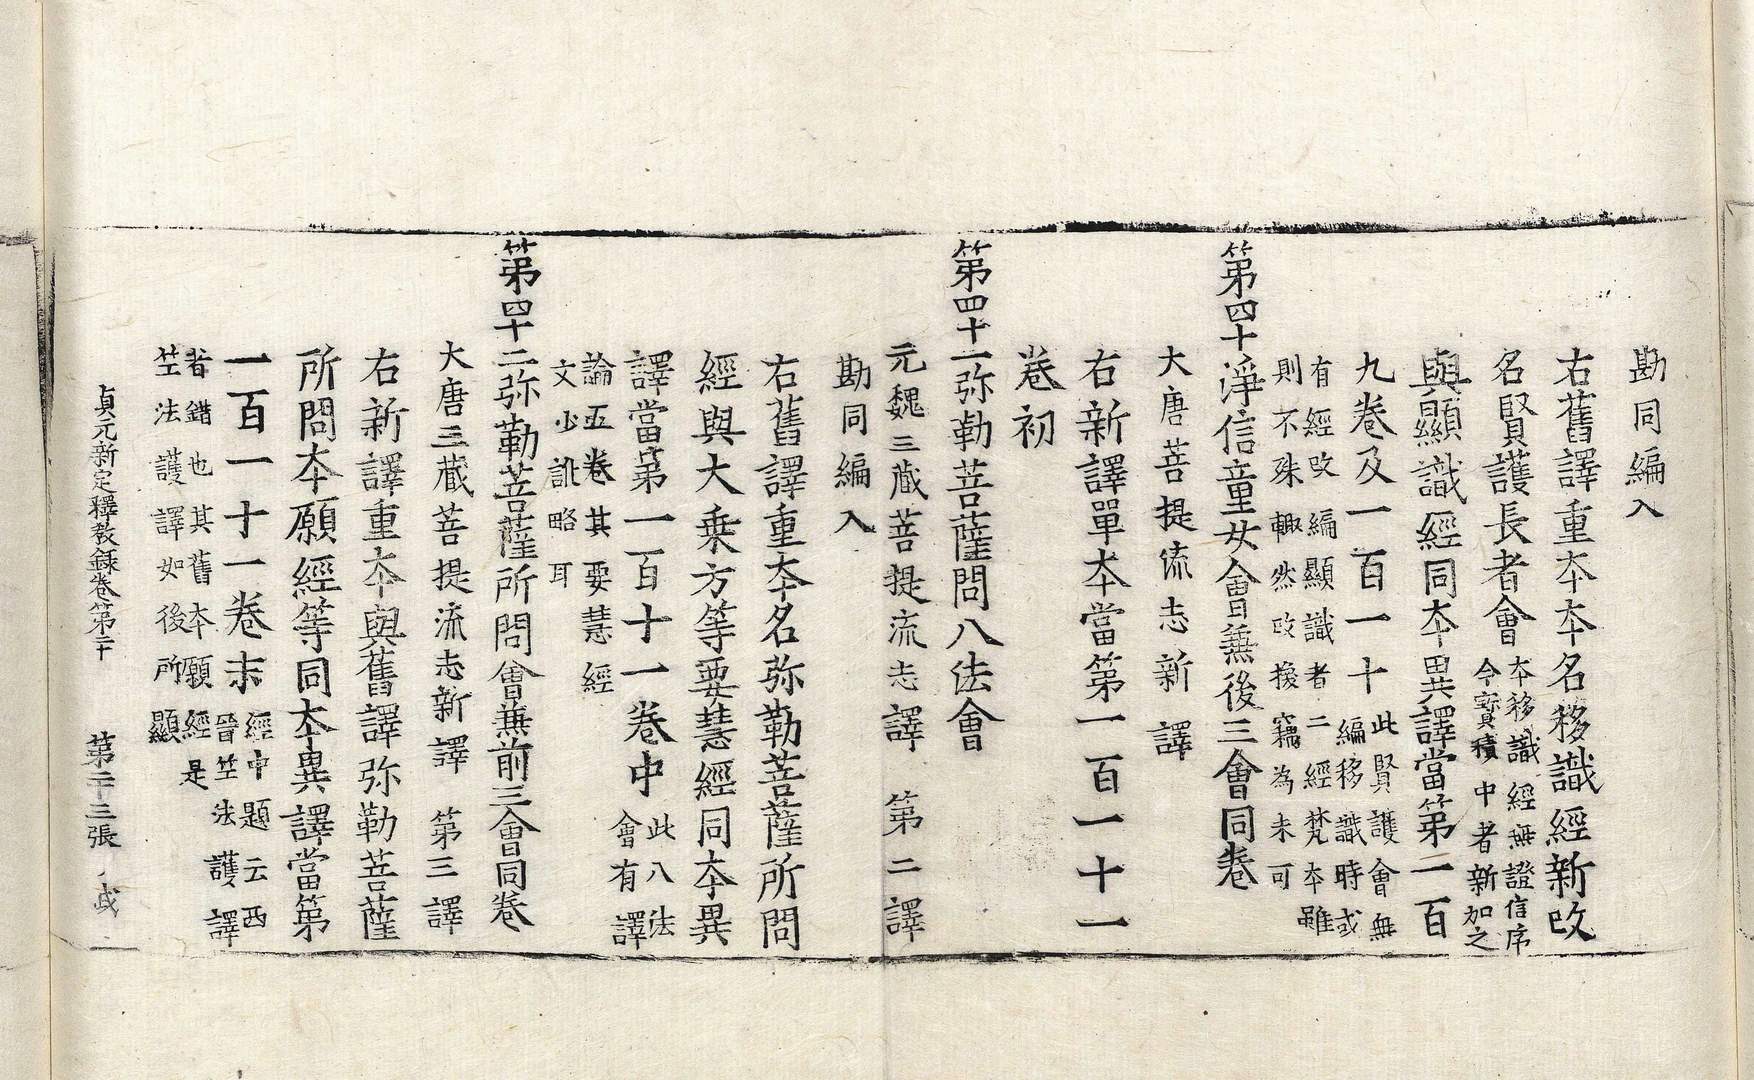 勘同編入
右舊譯重本本名移識經新改
名賢護長者會本移識經無證信序
今寶積中者新加之
與顯識經同本異譯當第一百
九卷及一百一十此賢護會無
編移識時或
有經改編顯識者二經梵本雖
則不殊輙然改換竊為未可
第四十淨信童女會兼後三會同卷
大唐菩提流志新譯
右新譯單本當第一百一十一
卷初
第四十一弥勒菩薩問八法會
元魏三藏菩提流志譯 第二譯
勘同編入
右舊譯重本名弥勒菩薩所問
經與大乗方等要慧經同本異
譯當第一百十一卷中此八法
會有譯
論五卷其要慧經
文少訛略耳
第四十二弥勒菩薩所問會兼前三會同卷
大唐三藏菩提流志新譯 第三譯
右新譯重本與舊譯弥勒菩薩
所問本願經等同本異譯當第
一百一十一卷末經中題云西
晉竺法護譯
者錯也其舊本願經是
竺法護譯如後所顯
貞元新定釋教錄卷第二十 第二十三張